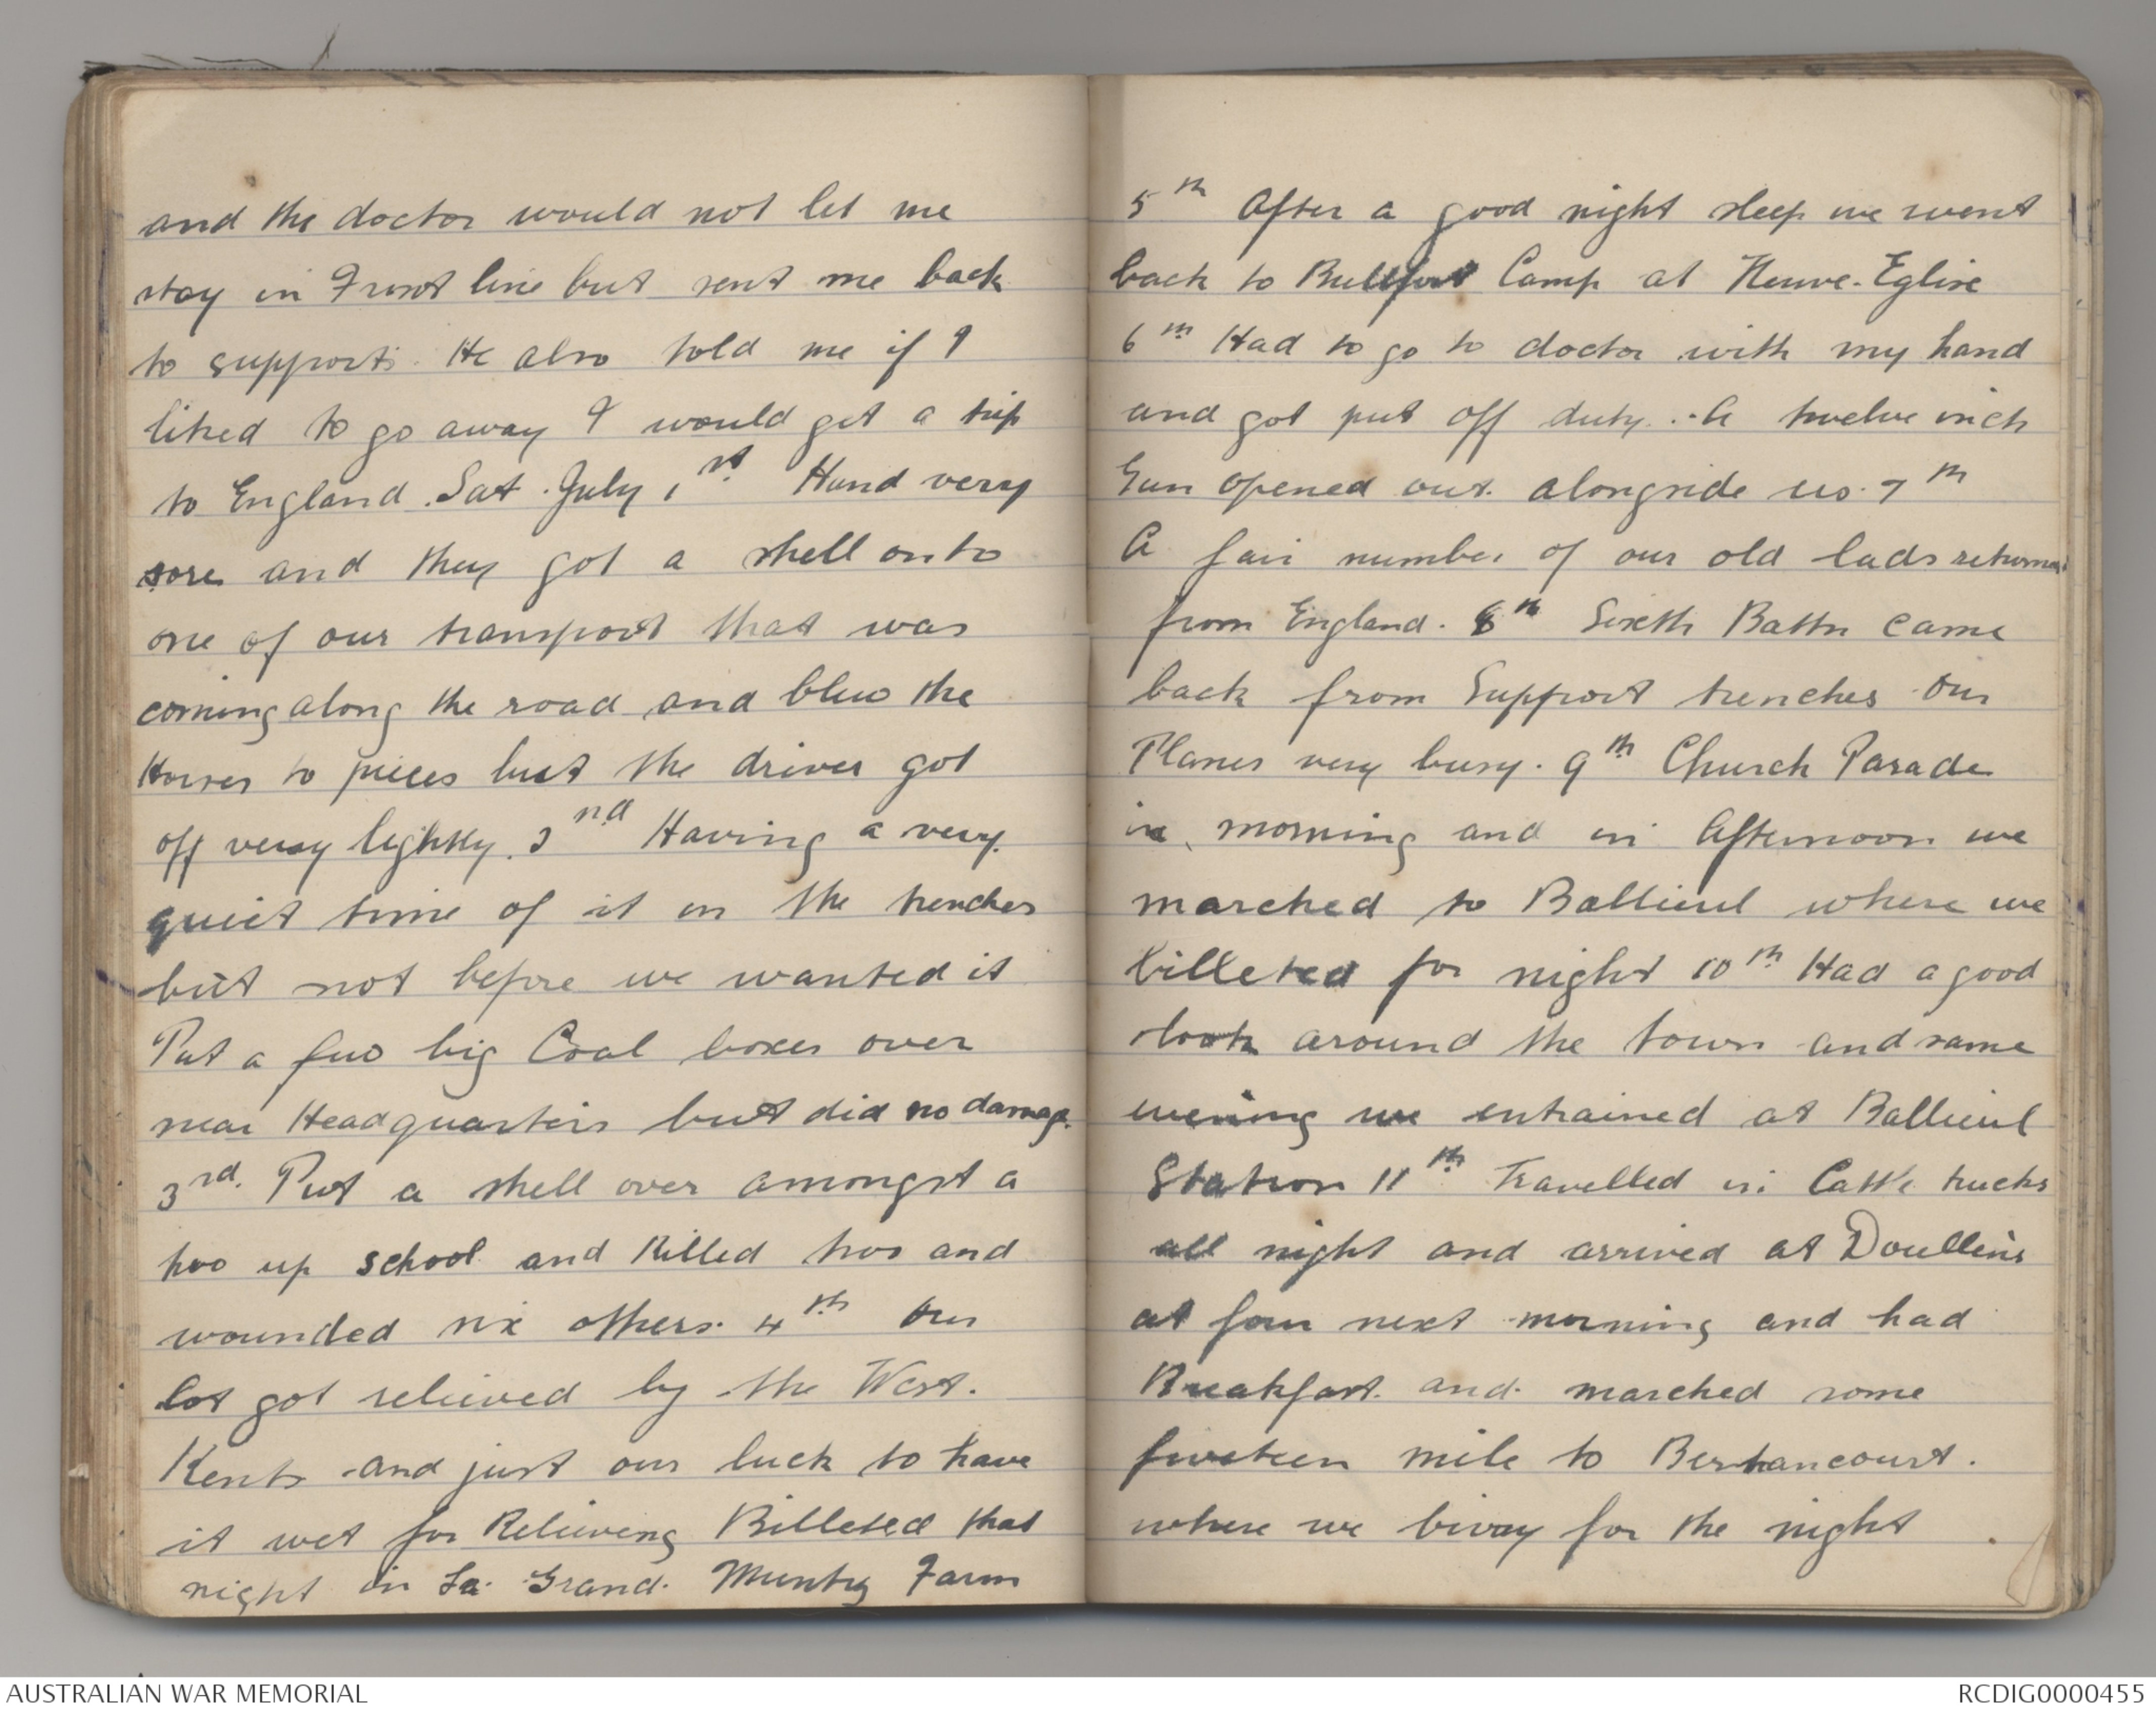 and the doctor would not let me
stay in Front line but sent me back
to supports. He also told me if I
liked to go away I would get a trip
to England. Sat. July 1st Hand very
sore and they got a shell onto
one of our transport that was
coming along the road and blew the
Horses to pieces but the driver got
off very lightly. 2nd Having a very
quiet time of it in the trenches
but not before we wanted it
Put a few big Coal boxes over
near Headquarters but did no damage.
3rd. Put a shell over amongst a
two up school and Killed two and
wounded six others. 4th Our
lot got relieved by the West.
Kents and just our luck to have
it wet for Relieving Billeted that
night in La. Grand. Munty Farm
5th After a good night sleep we went
back to Bullfort Camp at Neuve-Eglise
6th Had to go to doctor with my hand
and got put off duty. A twelve inch
Gun opened out alongside us. 7th
A fair number of our old lads returned
from England. 8th Sixth Battn came
back from Support trenches Our
Planes very busy. 9th Church Parade
in morning and in Afternoon we
marched to Ballieul where we
billeted for night 10th Had a good
look around the town and same
evening we entrained at Ballieul
Station 11th Travelled in Cattle trucks
all night and arrived at Doullens
at four next morning and had
Breakfast. and marched some
fiveteen mile to Bertancourt.
where we bivay for the night
AUSTRALIAN WAR MEMORIAL
RCDIG0000455